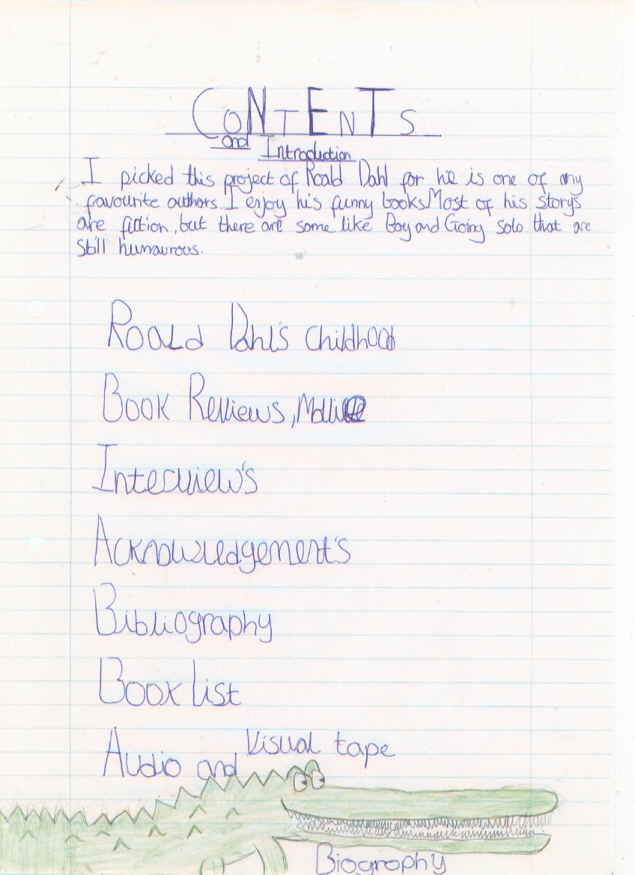 CONTENTS
and Introduction
I picked this project of Roald Dahl for he is one of my
favourite authors. I enjoy his funny books. Most of his story's
are fiction, but there are some like Boy and Going Solo that are
still humaurous.
Roald Dahl's childhood
Book Reviews,
Interview's
Acknowledgement's
Bibliography
Book list
Audio and Visual tape
Biography